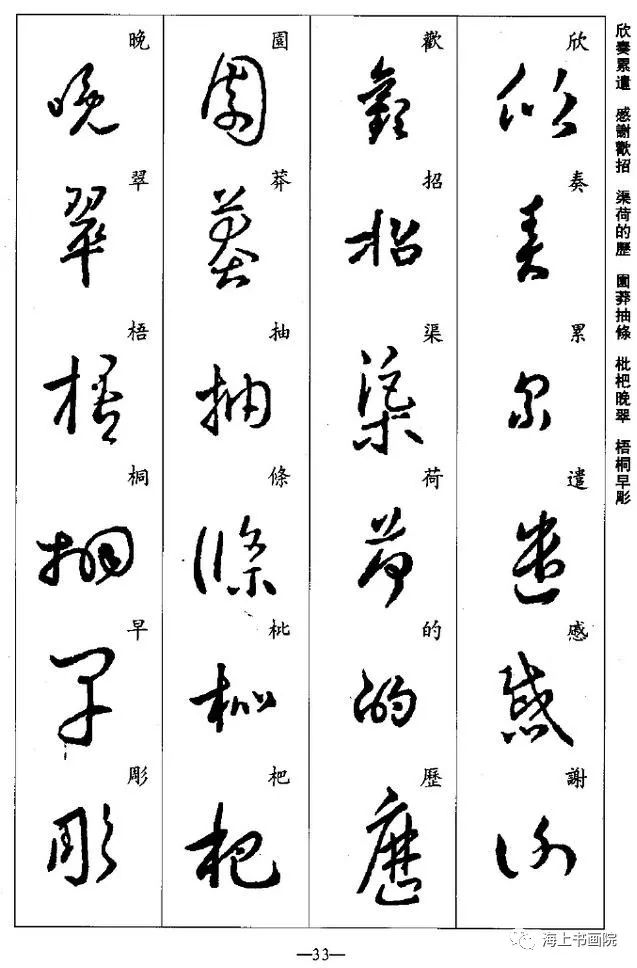 欣奏累遣 感謝歡招 渠荷的歷 園莽抽條 枇杷晚翠 梧桐早彫
欣奏累遣感謝
歡招渠荷的歷
園莽抽條枇杷
晚翠梧桐早彫
—33—
海上书画院